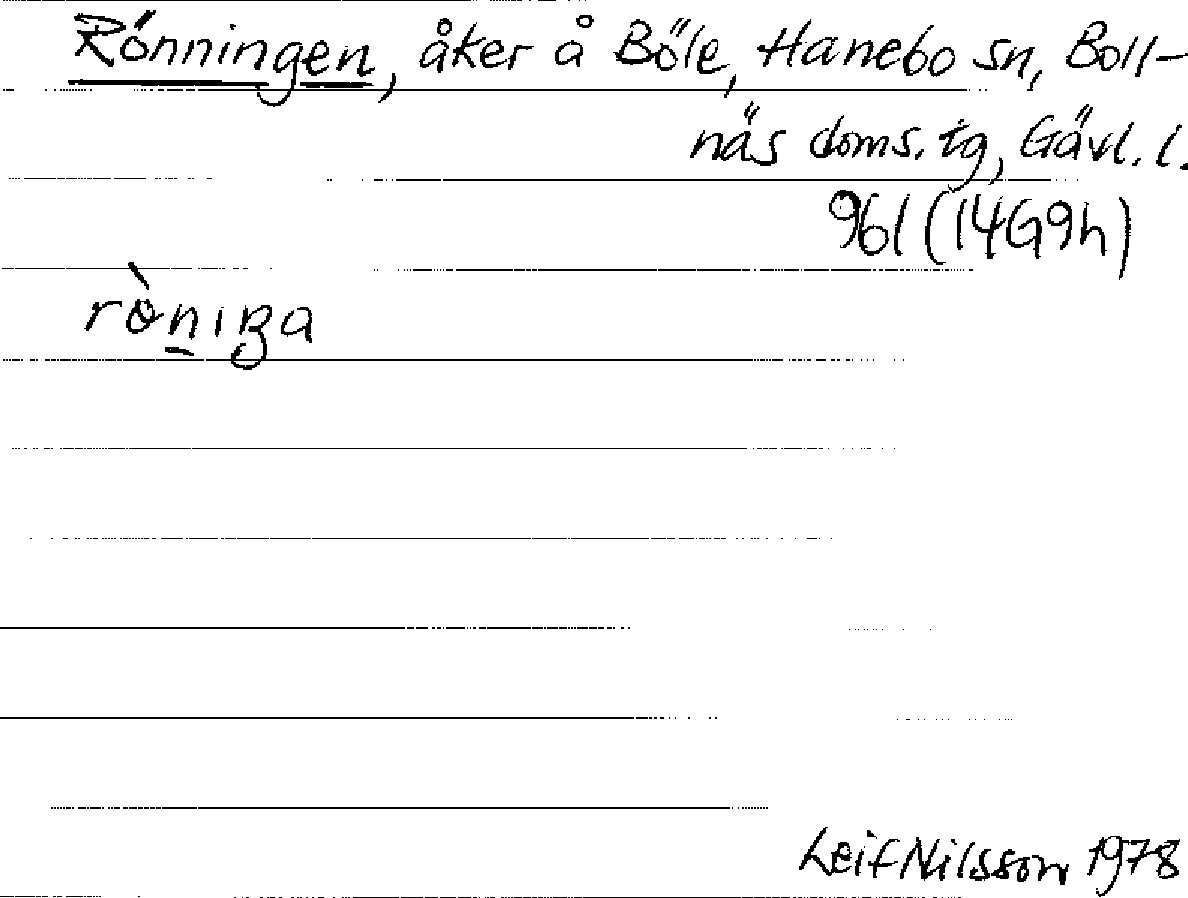 Rönningen, åker å Böle, Hanebo sn, Boll-
näs doms. tg, Gävl. l.
961 (14G9h)
rö̀n̲iŋa
Leif Nilsson 1978